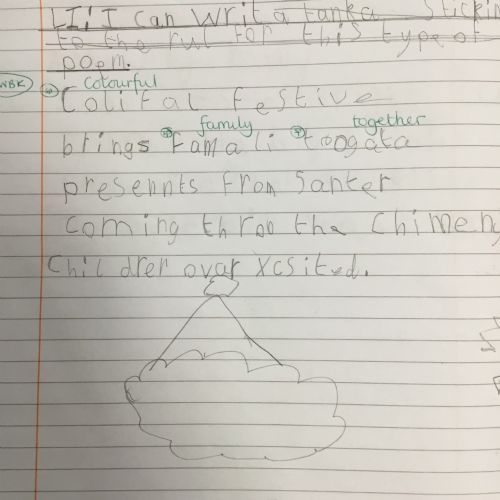 LI: I can write a tanka sticking
to the rul for this type of
poem.
WBK
colourful
Colifal festive
family together
brings famali toogata
presennts from Santer
coming throo tha Chimeny
Childrer ovar Xcsited.